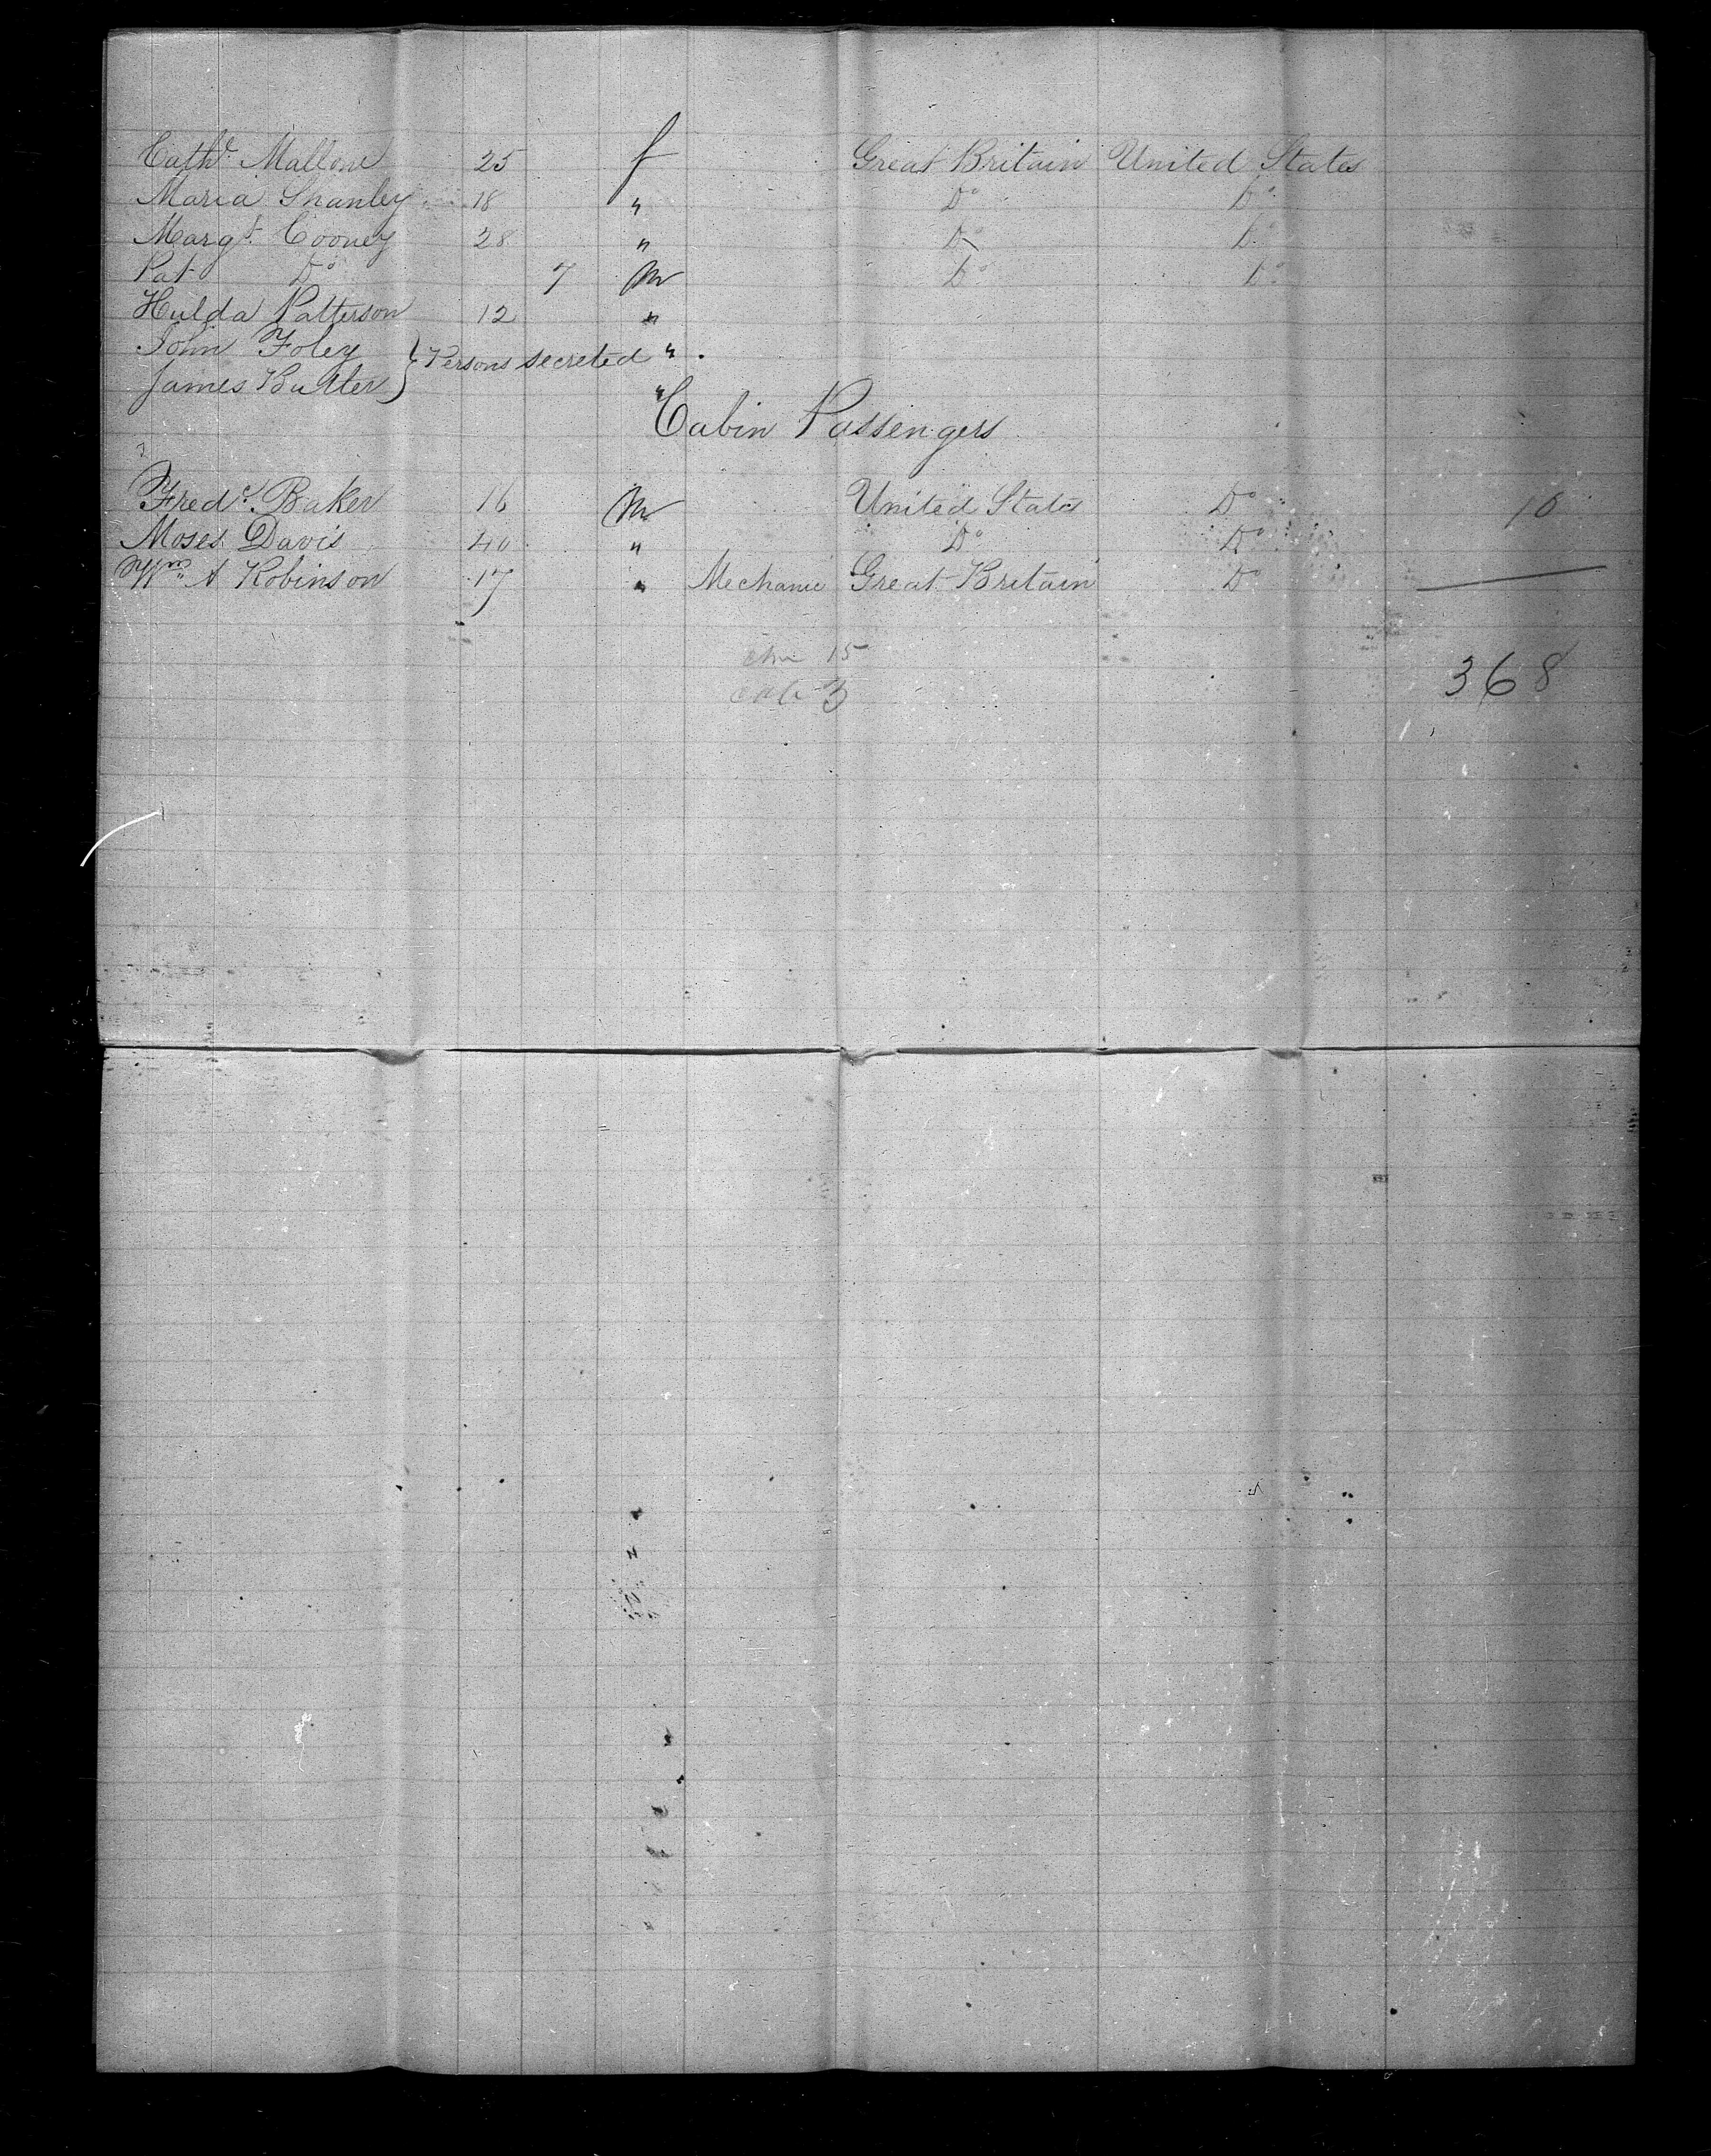 Cathe Mallon 25 f Great Britain United States
Maria Shanley 18 " Do Do
Margt Cooney 28 " Do Do
Pat Do 7 M Do Do
Hulda Patterson 12 "
John Foley } Persons secreted "
James Butler } "
Cabin Passengers
Fredc Baker 16 M United States Do 10
Moses Davis 40 " Do Do
Wm A Robinson 17 " Mechanic Great Britain Do
15
3
368